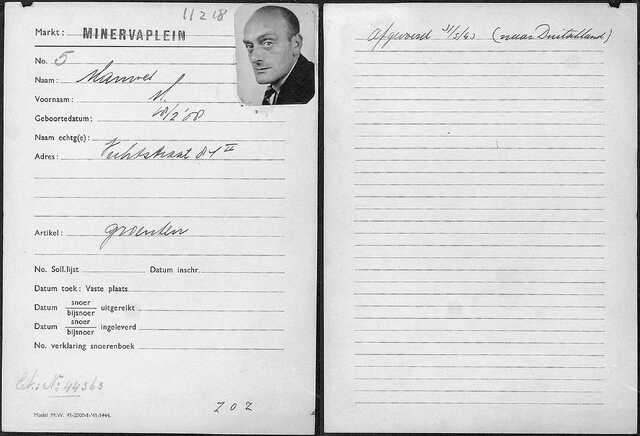 11218
Markt: MINERVAPLEIN
No. 5
Naam:
Voornaam:
Geboortedatum: 28/2'08
Naam echtg(e):
Adres: Vechtstraat 81 II
Artikel: groenten
No. Soll.lijst Datum inschr.
Datum toek: Vaste plaats
Datum snoer/bijsnoer uitgereikt
Datum snoer/bijsnoer ingeleverd
No. verklaring snoerenboek
No 44363
Model M.W.
ZOZ
Afgevoerd (naar Duitschland)